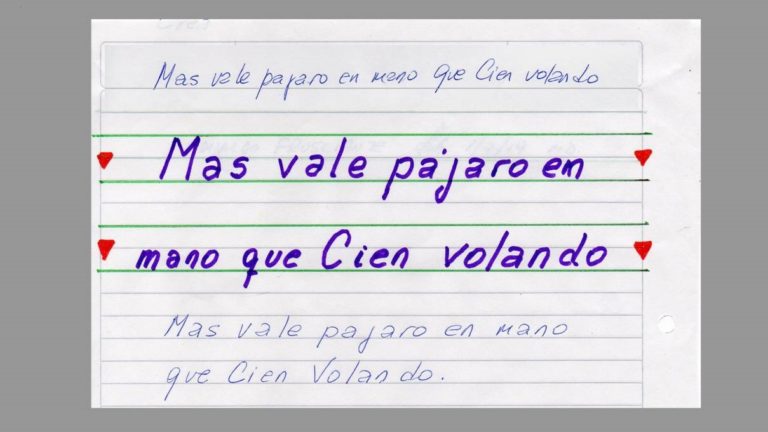 Mas vale pajaro en mano que Cien volando
Mas vale pájaro en
mano que Cien volando
Mas vale pajaro en mano
que Cien Volando.